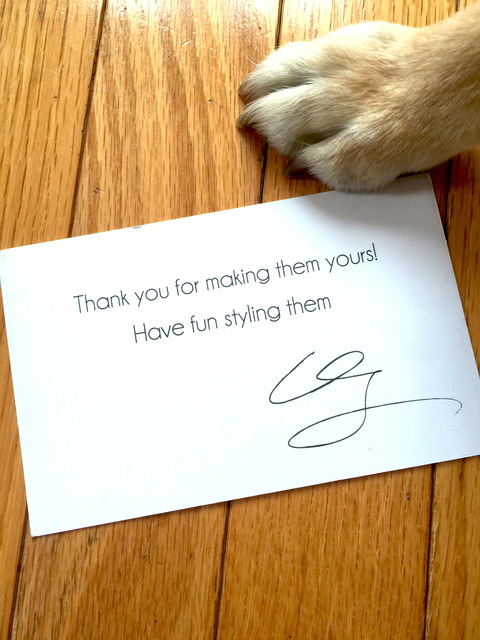 Thank you for making them yours!
Have fun styling them